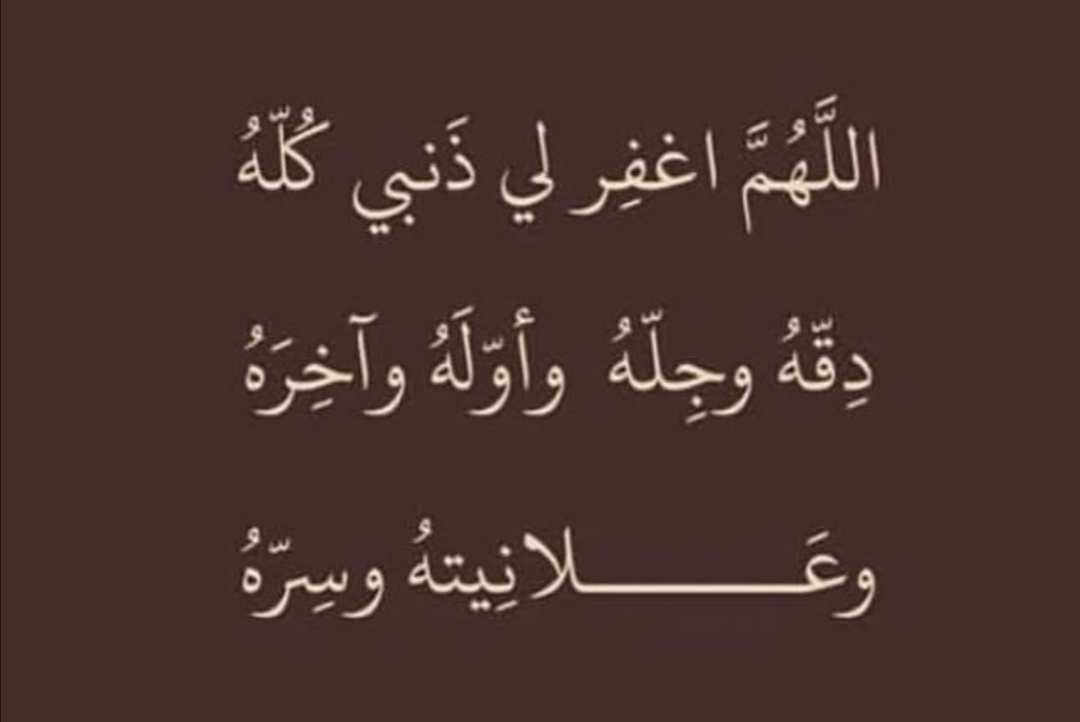 اللَّهُمَّ اغفِر لي ذَنبي كُلّهُ
دِقّهُ وجِلّهُ وأوّلَهُ وآخِرَهُ
وعَـــــــــلانِيتهُ وسِرّهُ